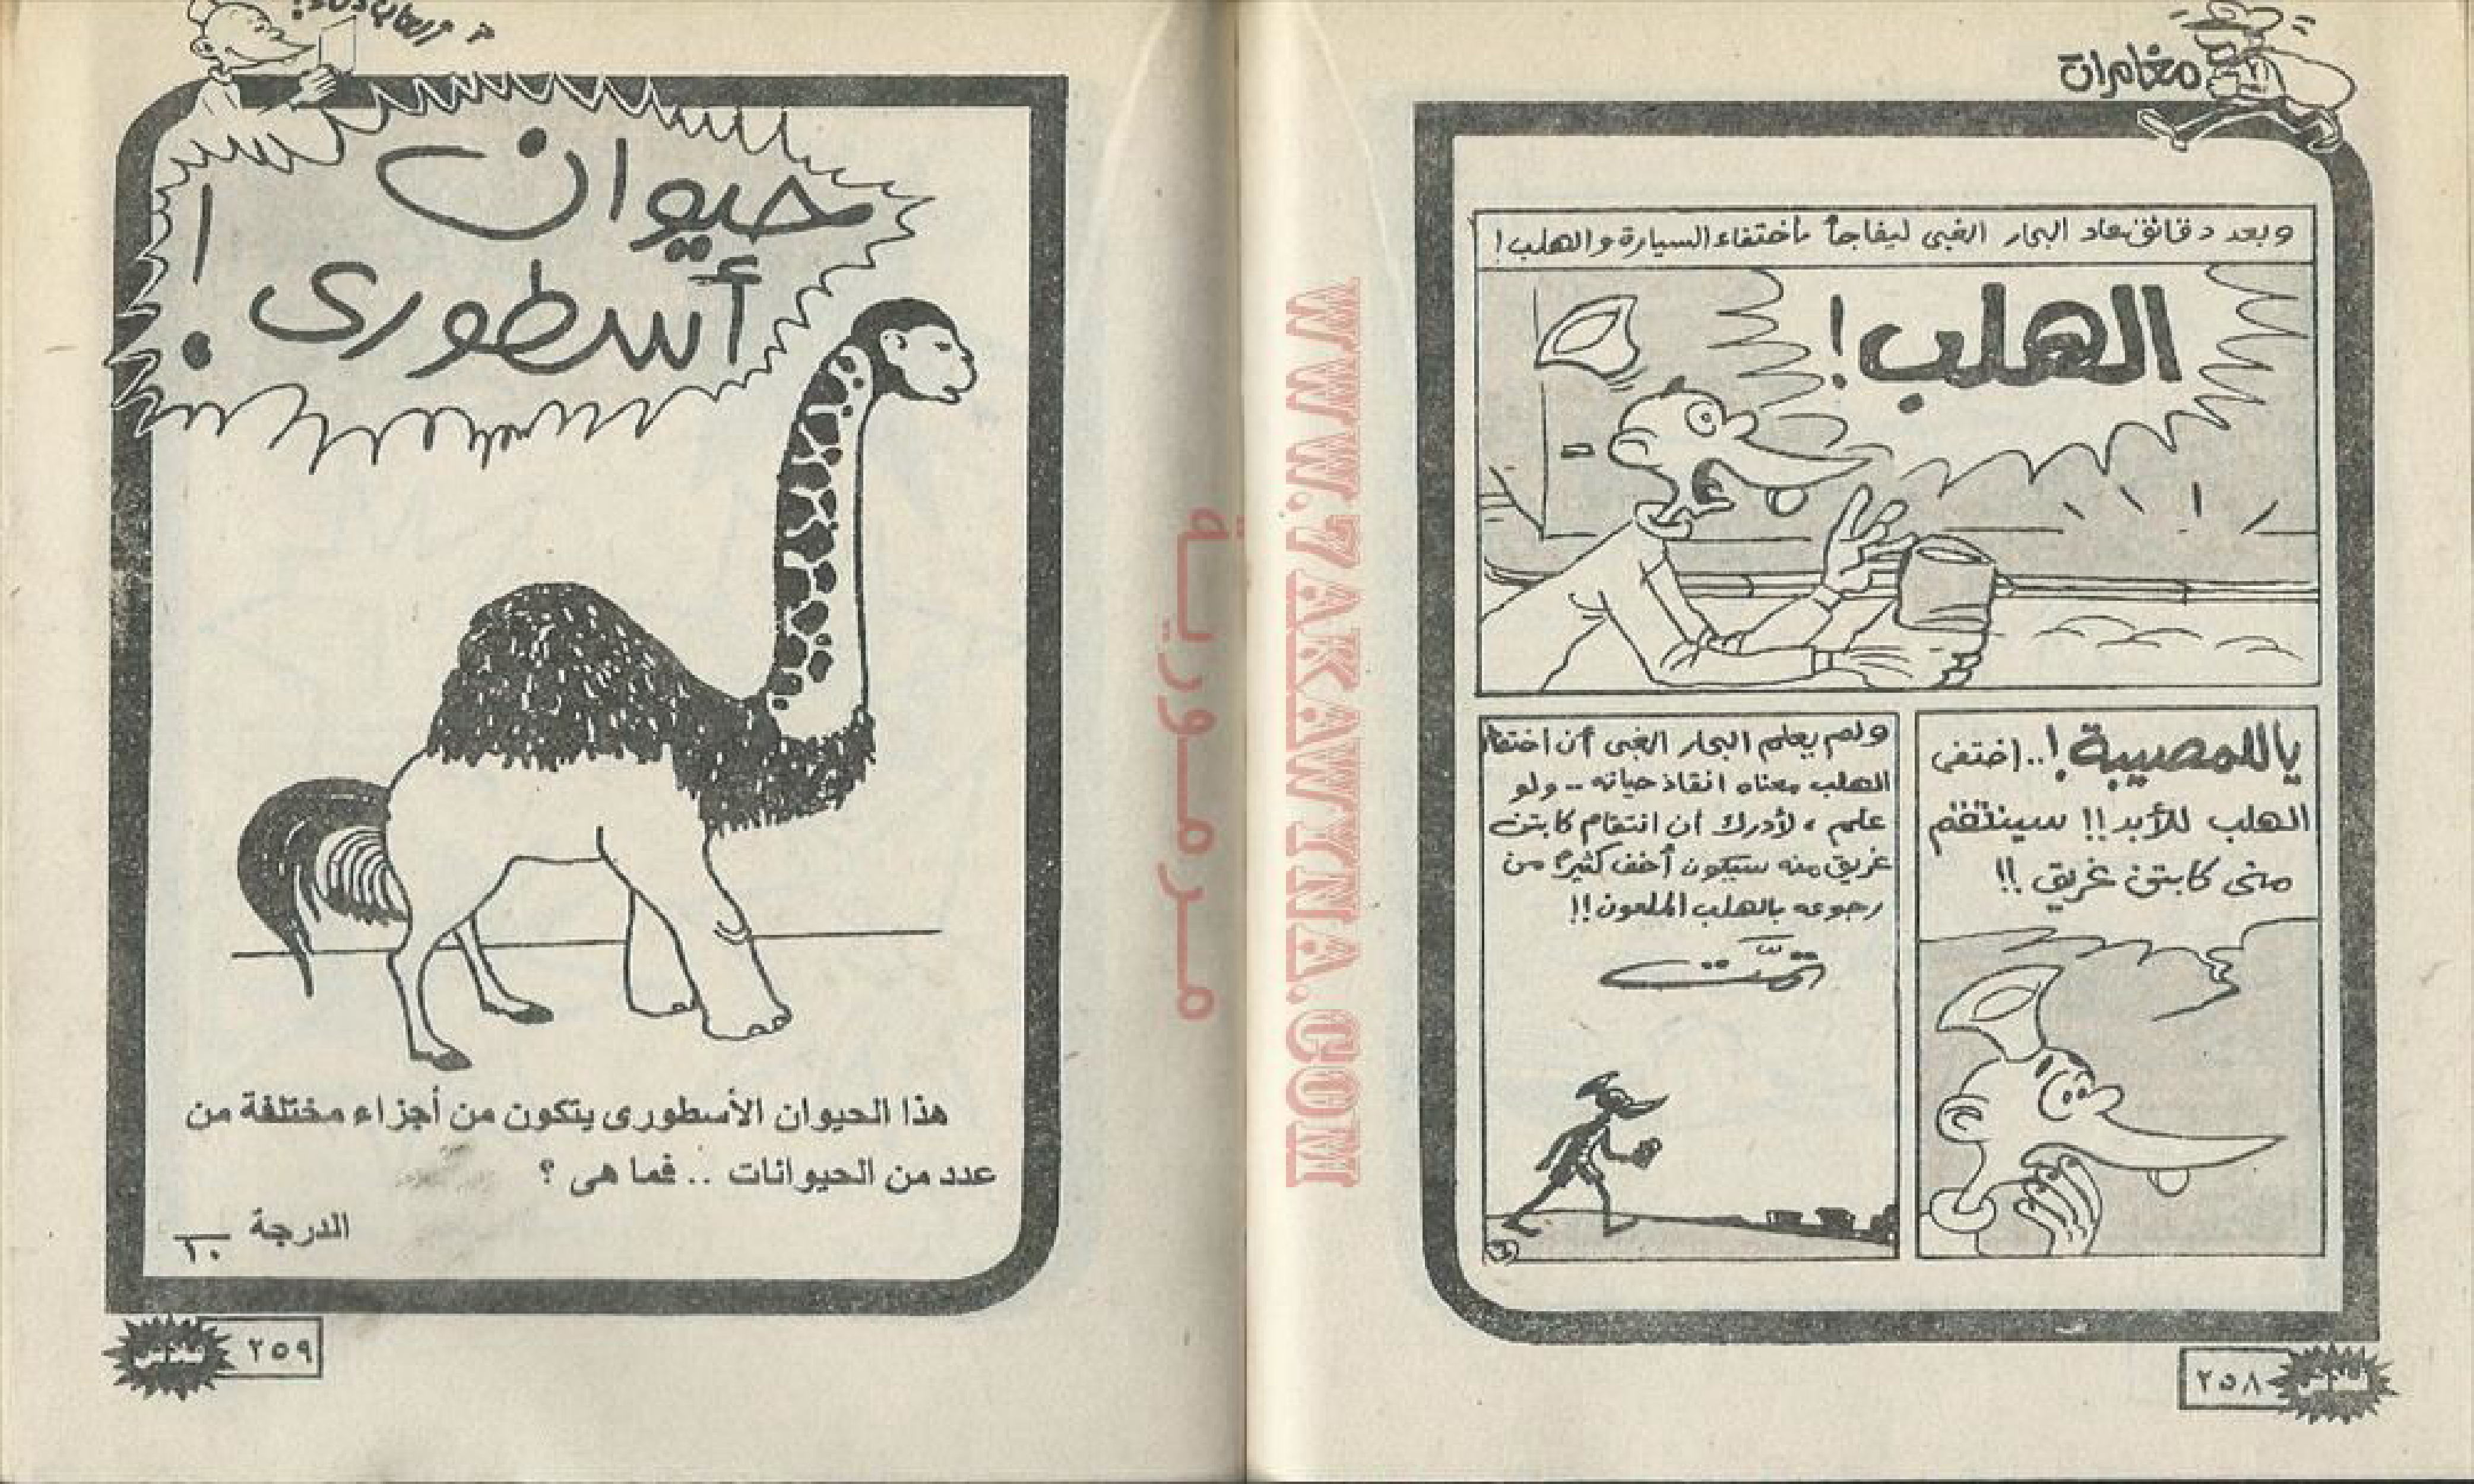 مغامرات
وبعد دقائق عاد البحار الغبى ليفاجأ بأختفاء السيارة والهلب!
الهلب!
ياللمصيبة!.. اختفى
الهلب للأبد!! سينتقم
منى كابتن غريق!!
ولم يعلم البحار الغبى أن اختفاء
الهلب معناه انقاذ حياته .. ولو
علم، لأدرك أن انتقام كابتن
غريق منه سيكون أخف كثيرًا من
رجوعه بالهلب الملعون!!
تمّت
٢٥٨
WWW.7AKAWYNA.COM
مرمورية
حيوان
أسطورى!
هذا الحيوان الأسطورى يتكون من أجزاء مختلفة من
عدد من الحيوانات .. فما هى ؟
الدرجة ١٠
٢٥٩